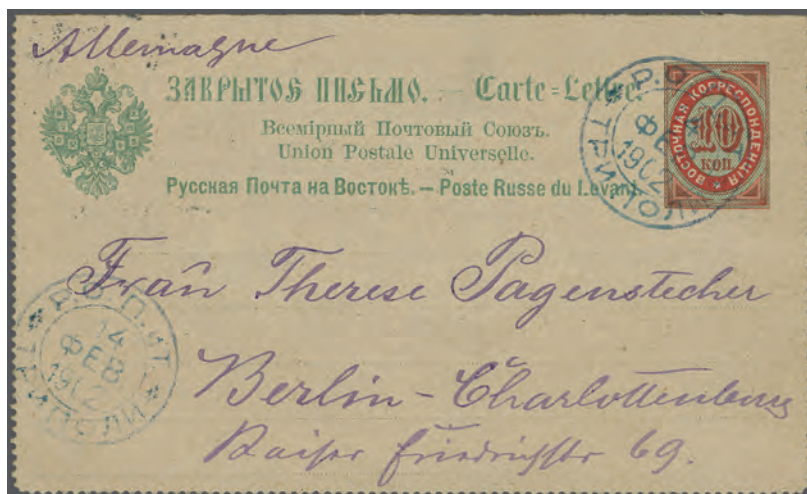 Allemagne
ЗАКРЫТОЕ ПИСЬМО. — Carte=Lettre.
Всемірный Почтовый Союзъ.
Union Postale Universelle.
Русская Почта на Востокѣ. — Poste Russe du Levant.
ВОСТОЧНАЯ КОРРЕСПОНДЕНЦІЯ
10
КОП
Р.О.
ФЕВ
1902
ТРИПОЛИ
Frau Therese Pagenstecher
Berlin-Charlottenburg
Kaiser Friedrichstr 69.
Р.О.П.иТ.
14
ФЕВ
1902
ТРИПОЛИ